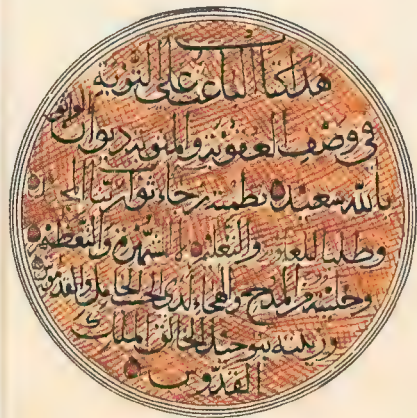 هذا كتاب الباعث على التوبة
في وصف العقوبة والمثوبة ديوان الواثق
بالله سعيد نظمته رجاء ثواب ربنا
وطلبا للعلم والتعلم لا للشهرة والتعظيم
وخليته من المدح والهجاء لدى الحب الخامل والقدموس
وزينته بتوحيد الخالق الملك
القدوس